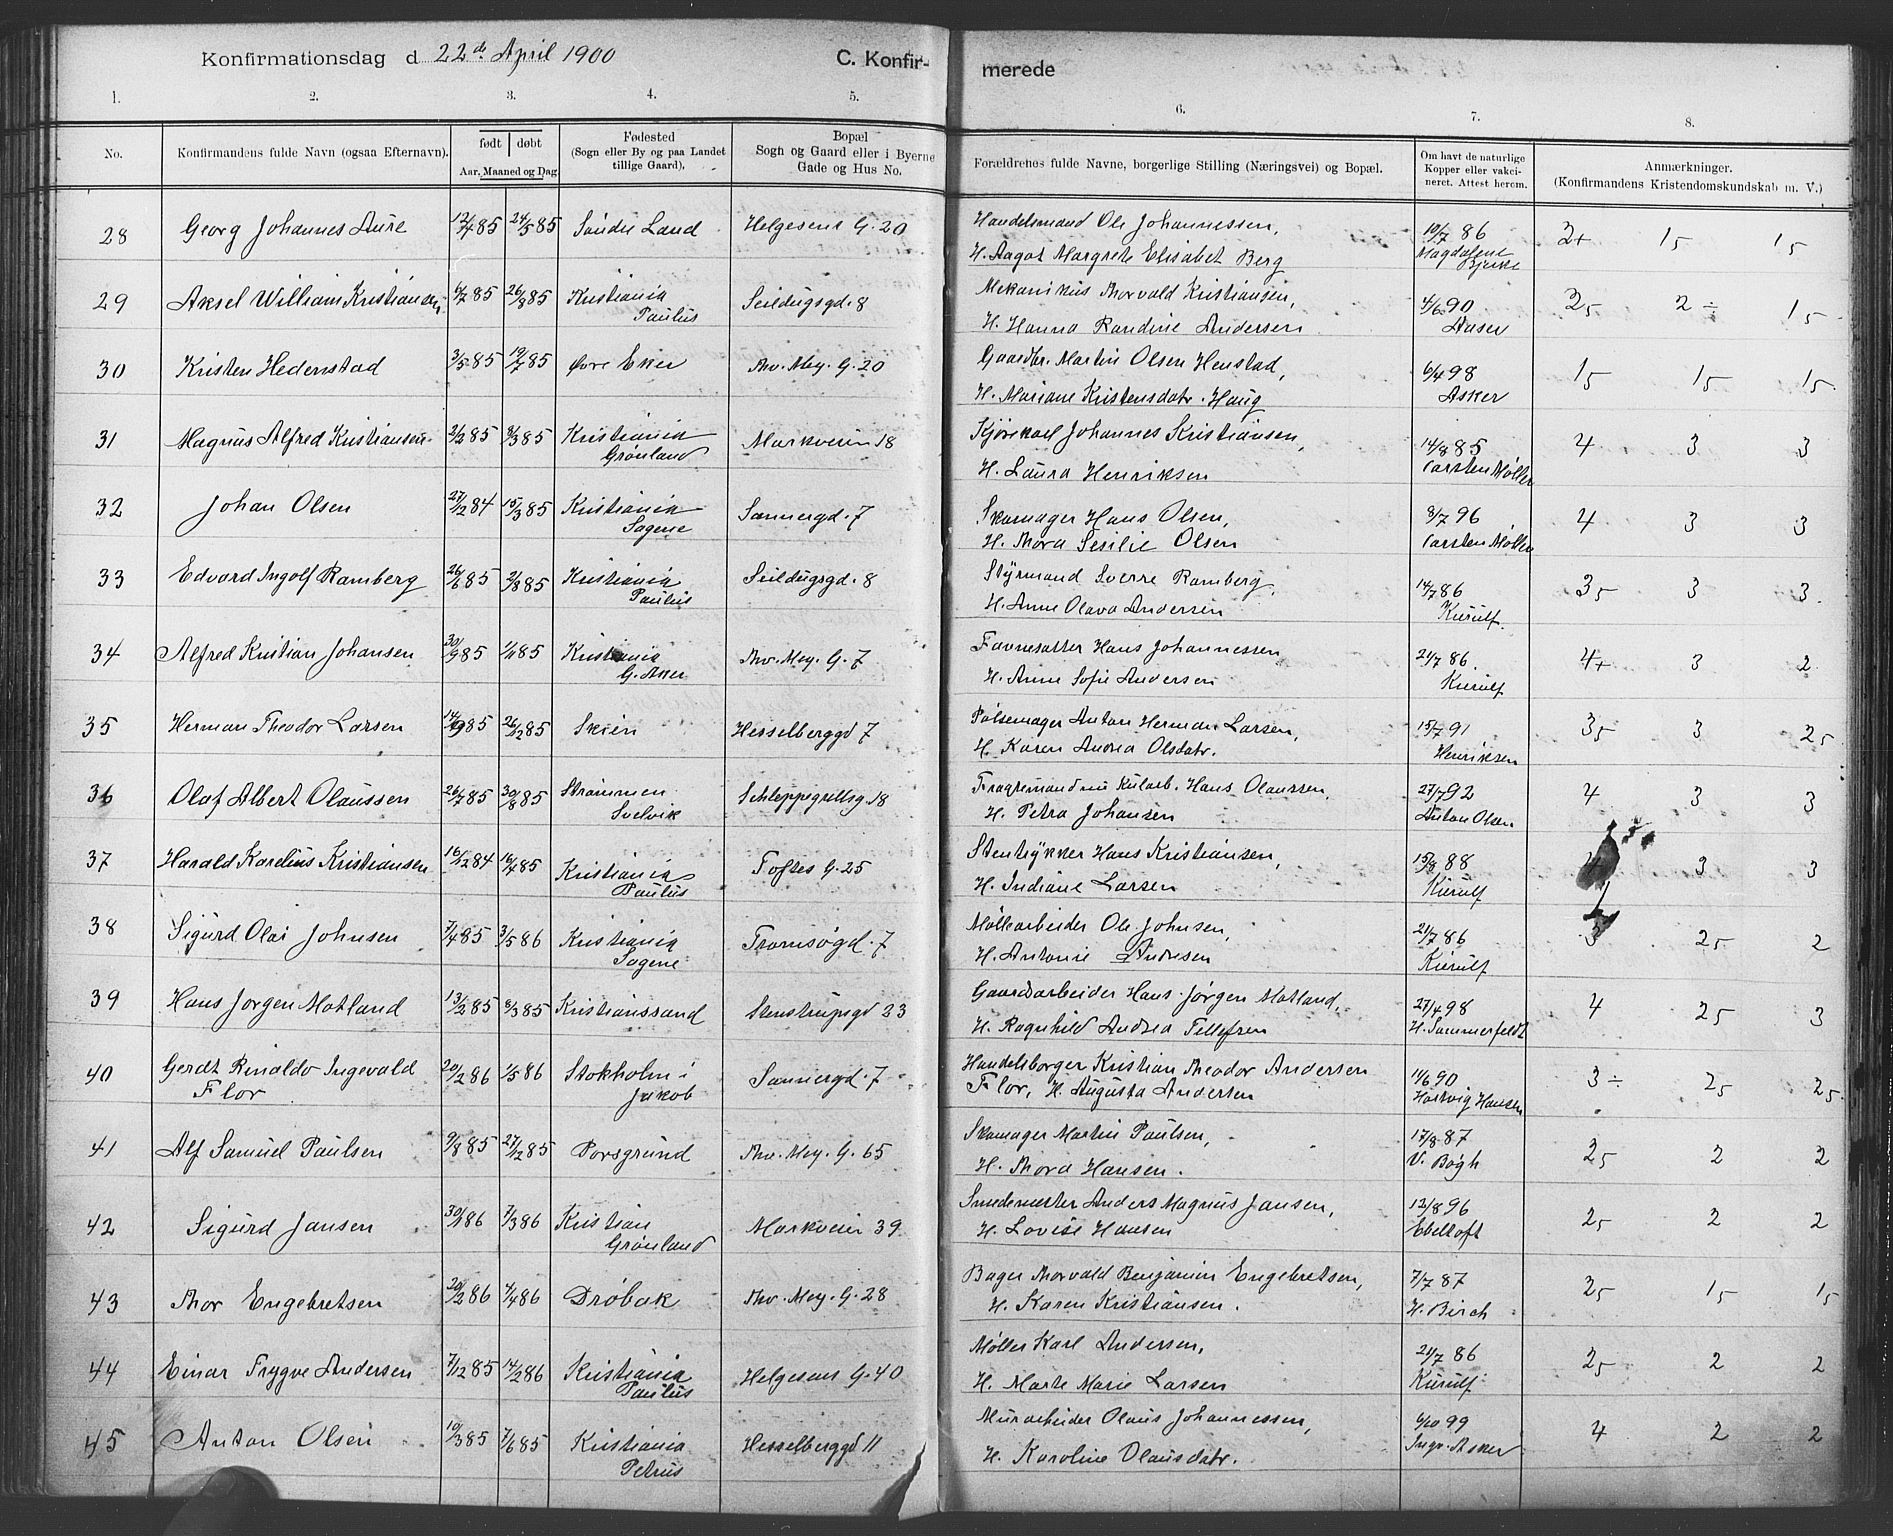 Konfirmationsdag d 22de April 1900 C. Konfir- merede
1. 2. 3. 4. 5. 6. 7. 8.
No. Konfirmandens fulde Navn (ogsaa Efternavn). født døbt Aar, Maaned og Dag Fødested (Sogn eller By og paa Landet tillige Gaard). Bopæl Sogn og Gaard eller i Byerne Gade og Hus No. Forældrenes fulde Navne, borgerlige Stilling (Næringsvei) og Bopæl. Om havt de naturlige Kopper eller vakcineret. Attest herom. Anmærkninger. (Konfirmandens Kristendomskundskab m. V.)
28 Georg Johannes Aure 12/4 85 24/5 85 Søndre Land Helgesens G. 20 Handelsmand Ole Johannessen, 19/7 86 2+ 15 15
H. Aagot Margrete Elisabet Berg Magdalene Bjerke
29 Aksel William Kristiansen 6/7 85 26/9 85 Kristiania Seildugsgd. 8 Mekanikus Thorvald Kristiansen, 4/6 90 25 2 ÷ 15
Paulus H. Hanna Randine Andersen Aaser
30 Kristen Hedenstad 3/5 85 19/7 85 Øvre Eker Thv. Mey. G. 20 Gaardbr. Martin Olsen Henstad, 6/4 98 15 15 15
H. Mariane Kristensdatr. Haug Asker
31 Magnus Alfred Kristiansen 2/2 85 8/3 85 Kristiania Markveien 18 Kjørekarl Johannes Kristiansen, 14/8 85 4 3 3
Grønland H. Laura Henriksen Carsten Møller
32 Johan Olsen 27/12 84 15/3 85 Kristiania Sannergd. 7 Skomager Hans Olsen, 8/7 96 4 3 3
Sagene H. Thora Sesilie Olsen Carsten Møller
33 Edvard Ingolf Ramberg 26/6 85 2/8 85 Kristiania Seildugsgd. 8 Styrmand Sverre Ramberg, 14/7 86 35 3 3.
Paulus H. Anne Olava Andersen Kierulf.
34 Alfred Kristian Johansen 30/9 85 1/11 85 Kristiania Thv. Mey. G. 7 Favnesætter Hans Johannessen 24/7 86. 4+ 3 2
G. Aker H. Anne Sofie Andersen Kierulf
35 Herman Theodor Larsen 14/9 85 26/12 85 Skien Hesselberggd 7 Pølsemager Anton Herman Larsen, 15/7 91 35 3 25
H. Karen Andrea Olsdatr. Henriksen
36 Olaf Albert Olaussen 26/7 85 30/8 85 Strømmen Schleppegrellsg. 18 Fragtemand nu Kularb. Hans Olaussen, 27/7 92 4 3 3
Svelvik H. Petra Johansen Anton Olsen
37 Harald Karelius Kristiansen 16/12 84 16/4 85 Kristiania Toftes G. 25 Stentrykker Hans Kristiansen, 15/8 88 4 3 3
Paulus H. Indiane Larsen Kierulf
38 Sigurd Olai Johnsen 7/4 85 3/5 86 Kristiania Tromsøgd. 7 Møllearbeider Ole Johnsen, 21/7 86 3 25 2
Sagene H. Antonie Andresen Kierulf
39 Hans Jørgen Motland 13/2 85 8/3 85 Kristianssand Stenstrupsgd 23 Gaardarbeider Hans Jørgen Motland, 27/4 98 4 25 3
H. Ragnhild Andrea Tellefsen H. Sommerfeldt
40 Gerdt Rinaldo Ingevald 20/2 86 2/5 86 Stokholm i Sannergd. 7 Handelsborger Kristian Theodor Andersen 11/6 90 3 ÷ 25 25
Flor Jakob Flor, H. Augusta Andersen Hartvig Hansen
41 Alf Samuel Paulsen 9/8 85 27/12 85 Porsgrund Thv. Mey. G. 65 Skomager Martin Paulsen, 17/8 87 25 2 2
H. Thora Hansen. V. Bøgh
42 Sigurd Jansen 30/1 86 7/3 86 Kristian Markveien 39 Smedemester Anders Magnus Jansen, 12/8 96 25 2 2
Grønland H. Lovise Hansen Ebeltoft
43 Thor Engebretsen 20/2 86 7/4 86 Drøbak Thv. Mey. G. 28 Bager Thorvald Benjamin Engebretsen, 7/7 87 25 15 15
H. Karen Kristiansen. H. Birch
44 Einar Trygve Andersen 7/12 85 14/2 86 Kristiania Helgesens G. 40 Møller Karl Andersen, 21/7 86 25 2 2
Paulus H. Marte Marie Larsen Kierulf
45 Anton Olsen 10/3 85 7/6 85 Kristiania Hesselberggd 11 Murarbeider Olaus Johannessen, 6/10 99 4 2 2
Petrus H. Karoline Olausdatr. Asker